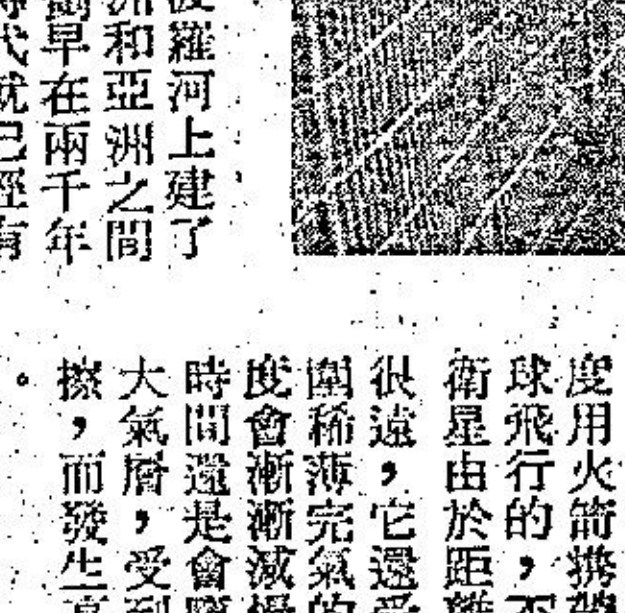 波羅河上建了
洲和亞洲之間
劃早在兩千年
代就已經有
度用火箭携帶
球飛行的，不
衛星由於距離
很遠，它還受
圍稀薄完氣的
度會漸漸減慢
時間還是會
大氣層，受到
擦，而發生高
。